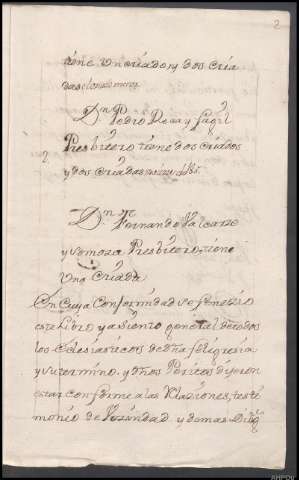 2
tiene un criado, y dos cria
das el uno de menor
Dn. Pedro Rosa y
2 Presbitero tiene dos criados
y dos criadas
Dn. Fernando Valcarze
y Somoza Presbitero, tiene
Una Criada
En Cuya Conformidad se fenezio
este Libro y asiento general de todos
los Eclesiasticos de dha feligresia
y su termino, y dhos Peritos dijeron
estar conforme a las Relaziones, teste
monio de Vezindad y demas
AHPOu